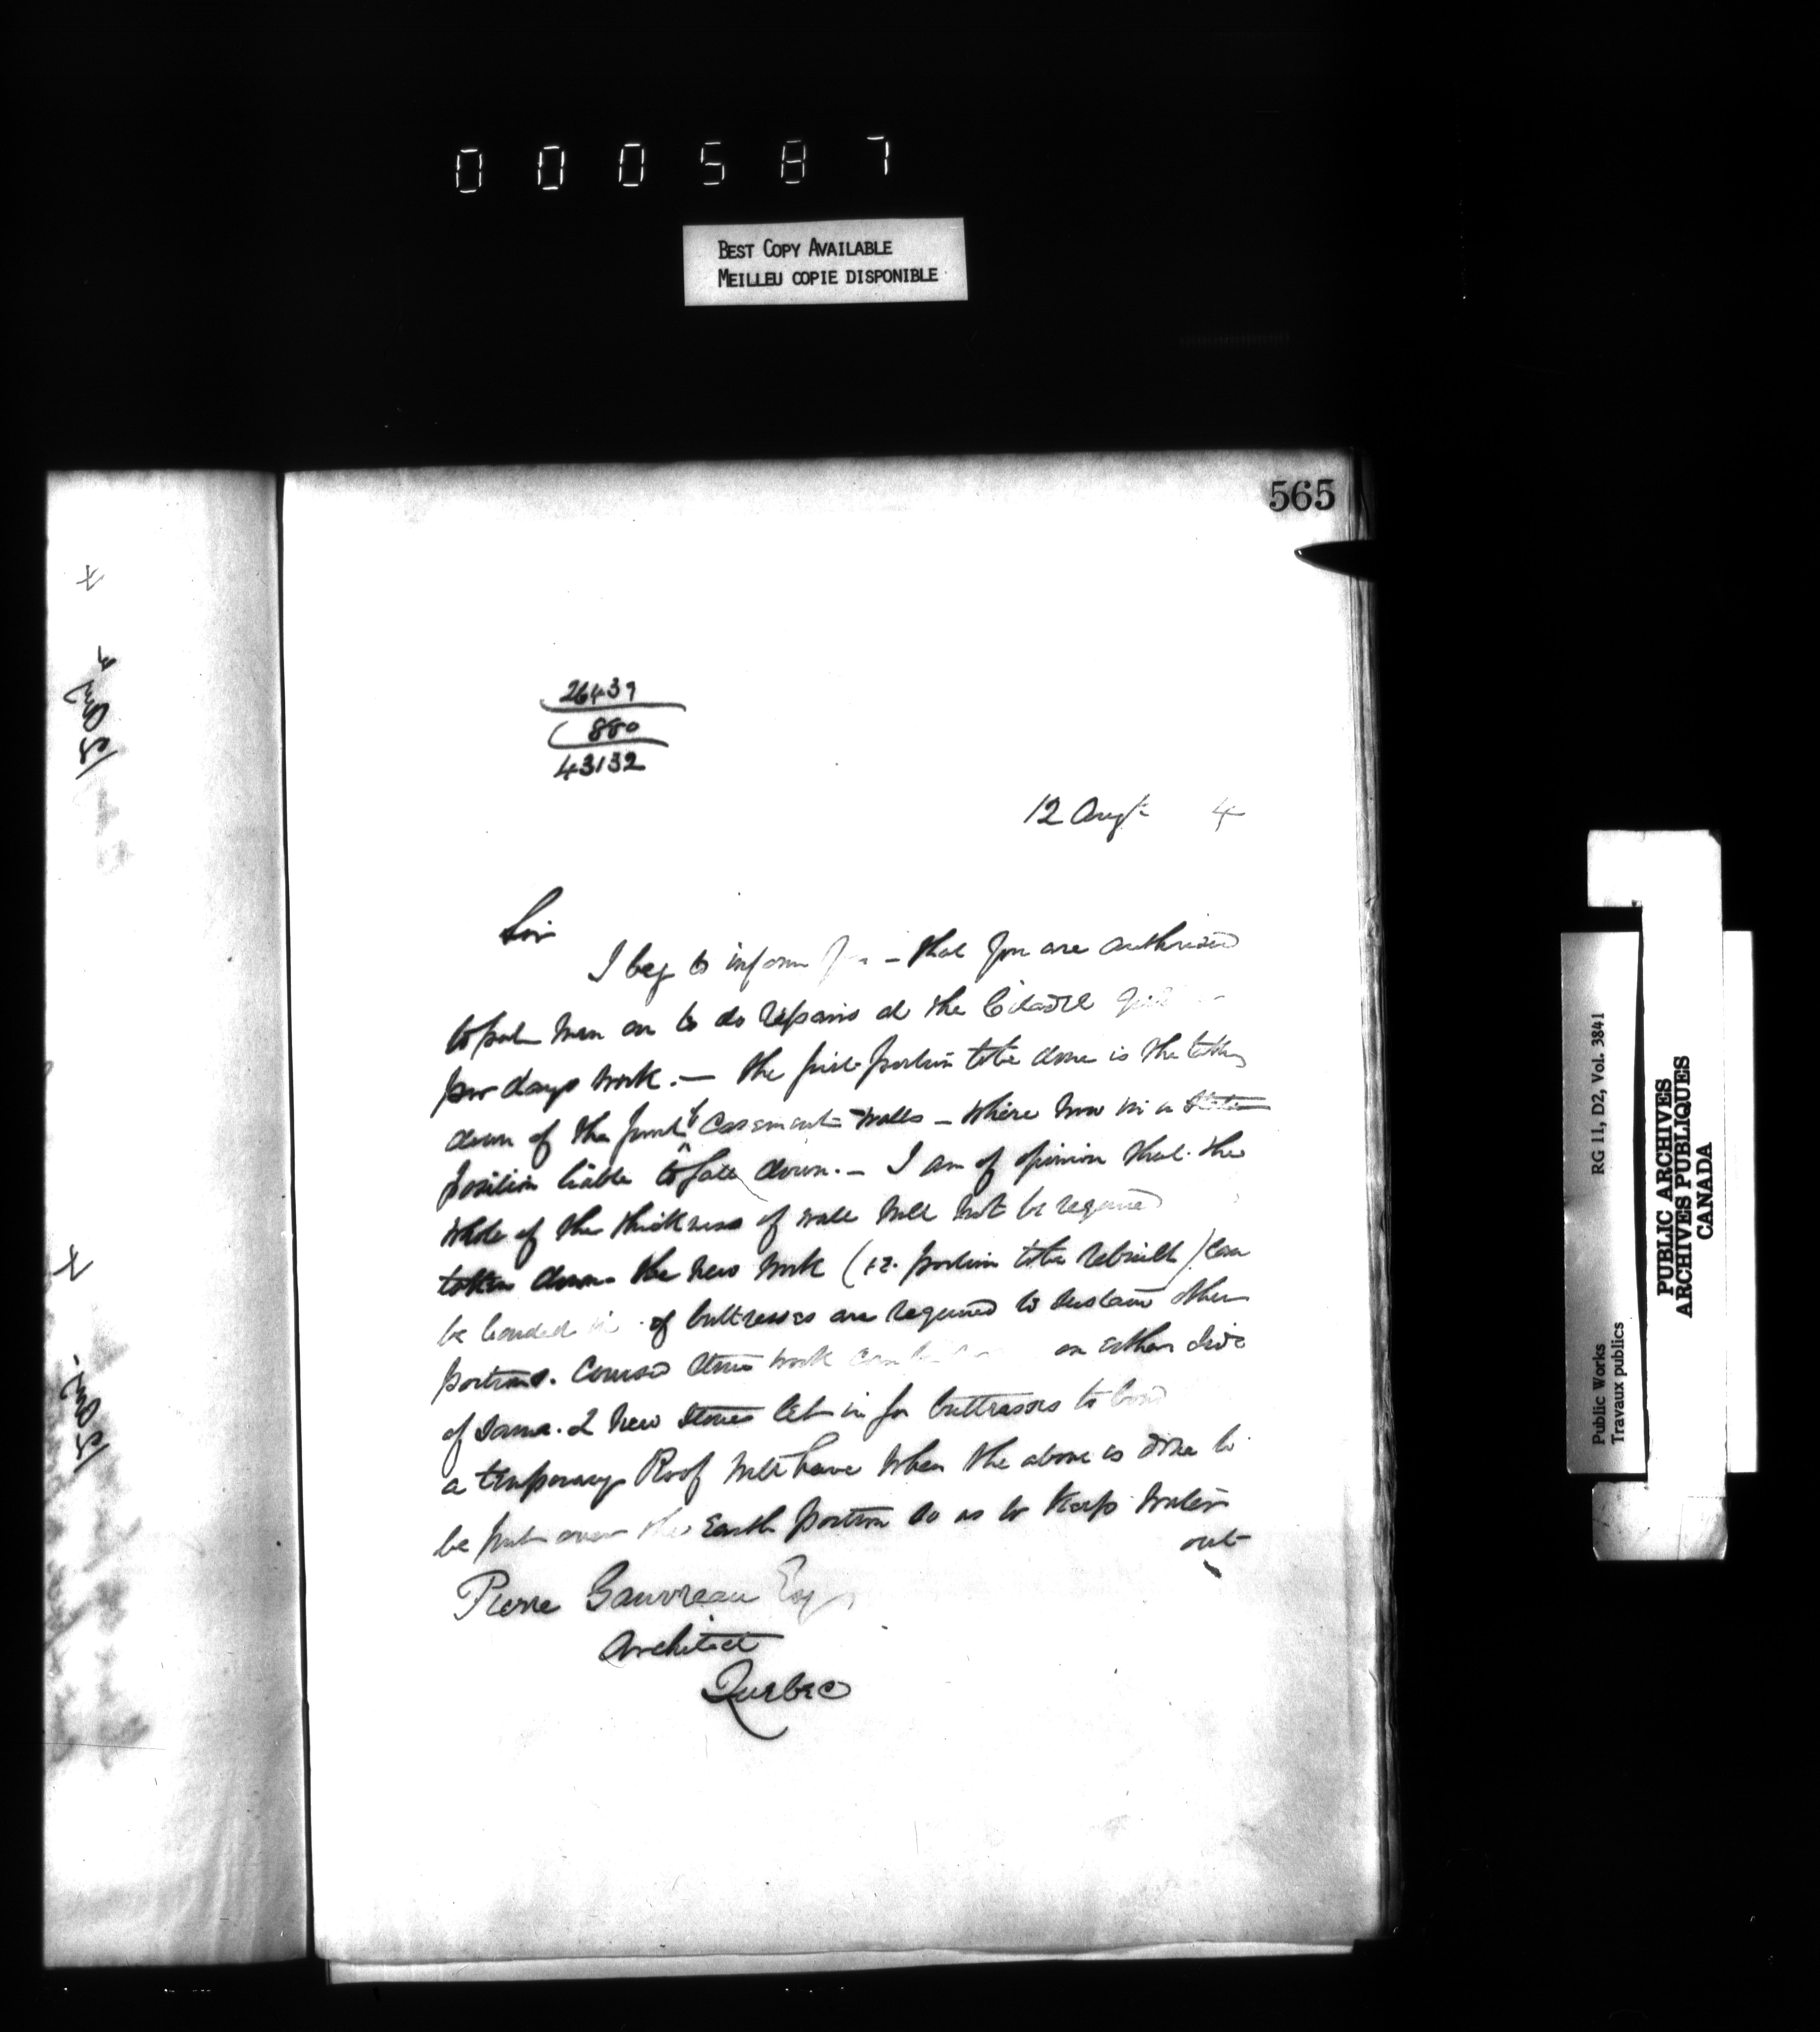 000587
BEST COPY AVAILABLE
MEILLEU COPIE DISPONIBLE
565
26439
880
43132
12 Augt 4
Sir
I beg to inform you - that you are authorized
to put men on to do repairs at the Citadel
per days work. — the first portion to be done is the taking
down of the front Casement walls - where now in a
position liable to fall down. - I am of opinion that the
whole of the thickness of wall will not be required
taken down the new work (i.e. portion to be rebuilt) can
be bonded in if buttresses are required to sustain other
portions. Coursed stone work can be on either side
of same. & new stones let in for buttresses to bond
a temporary Roof will have when the above is done to
be put over the Earth portion so as to keep water
out
Pierre Gauvreau Esq
Architect
Quebec
15 Aug
15 Aug
Public Works
Travaux publics
RG 11, D2, Vol. 3841
PUBLIC ARCHIVES
ARCHIVES PUBLIQUES
CANADA